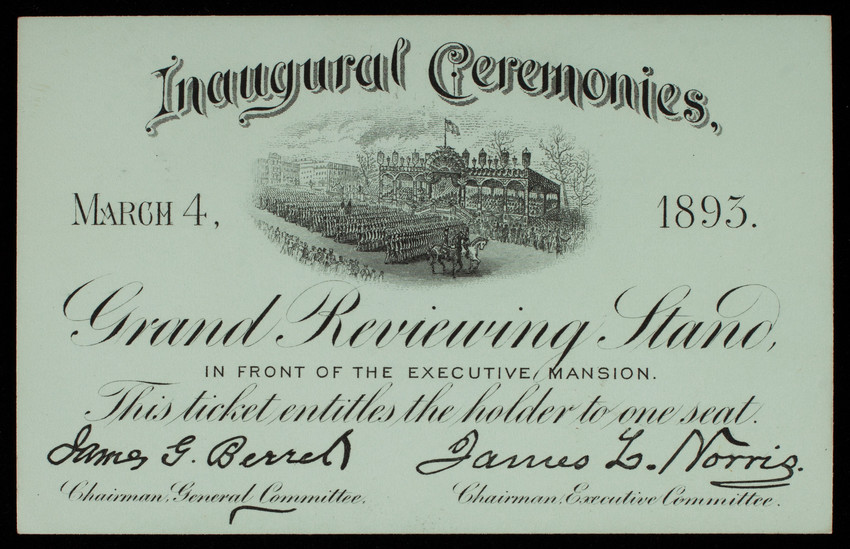 Inaugural Ceremonies,
March 4, 1893.
Grand Reviewing Stand,
IN FRONT OF THE EXECUTIVE MANSION.
This ticket entitles the holder to one seat.
James G. Berret James L. Norris.
Chairman, General Committee. Chairman, Executive Committee.